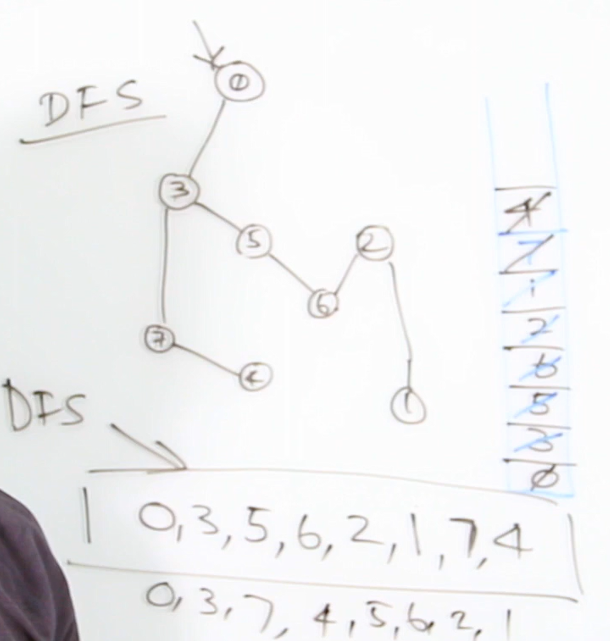 DFS
0
3
5
2
6
7
4
1
4
7
1
2
6
5
3
0
DFS
0,3,5,6,2,1,7,4
0,3,7,4,5,6,2,1